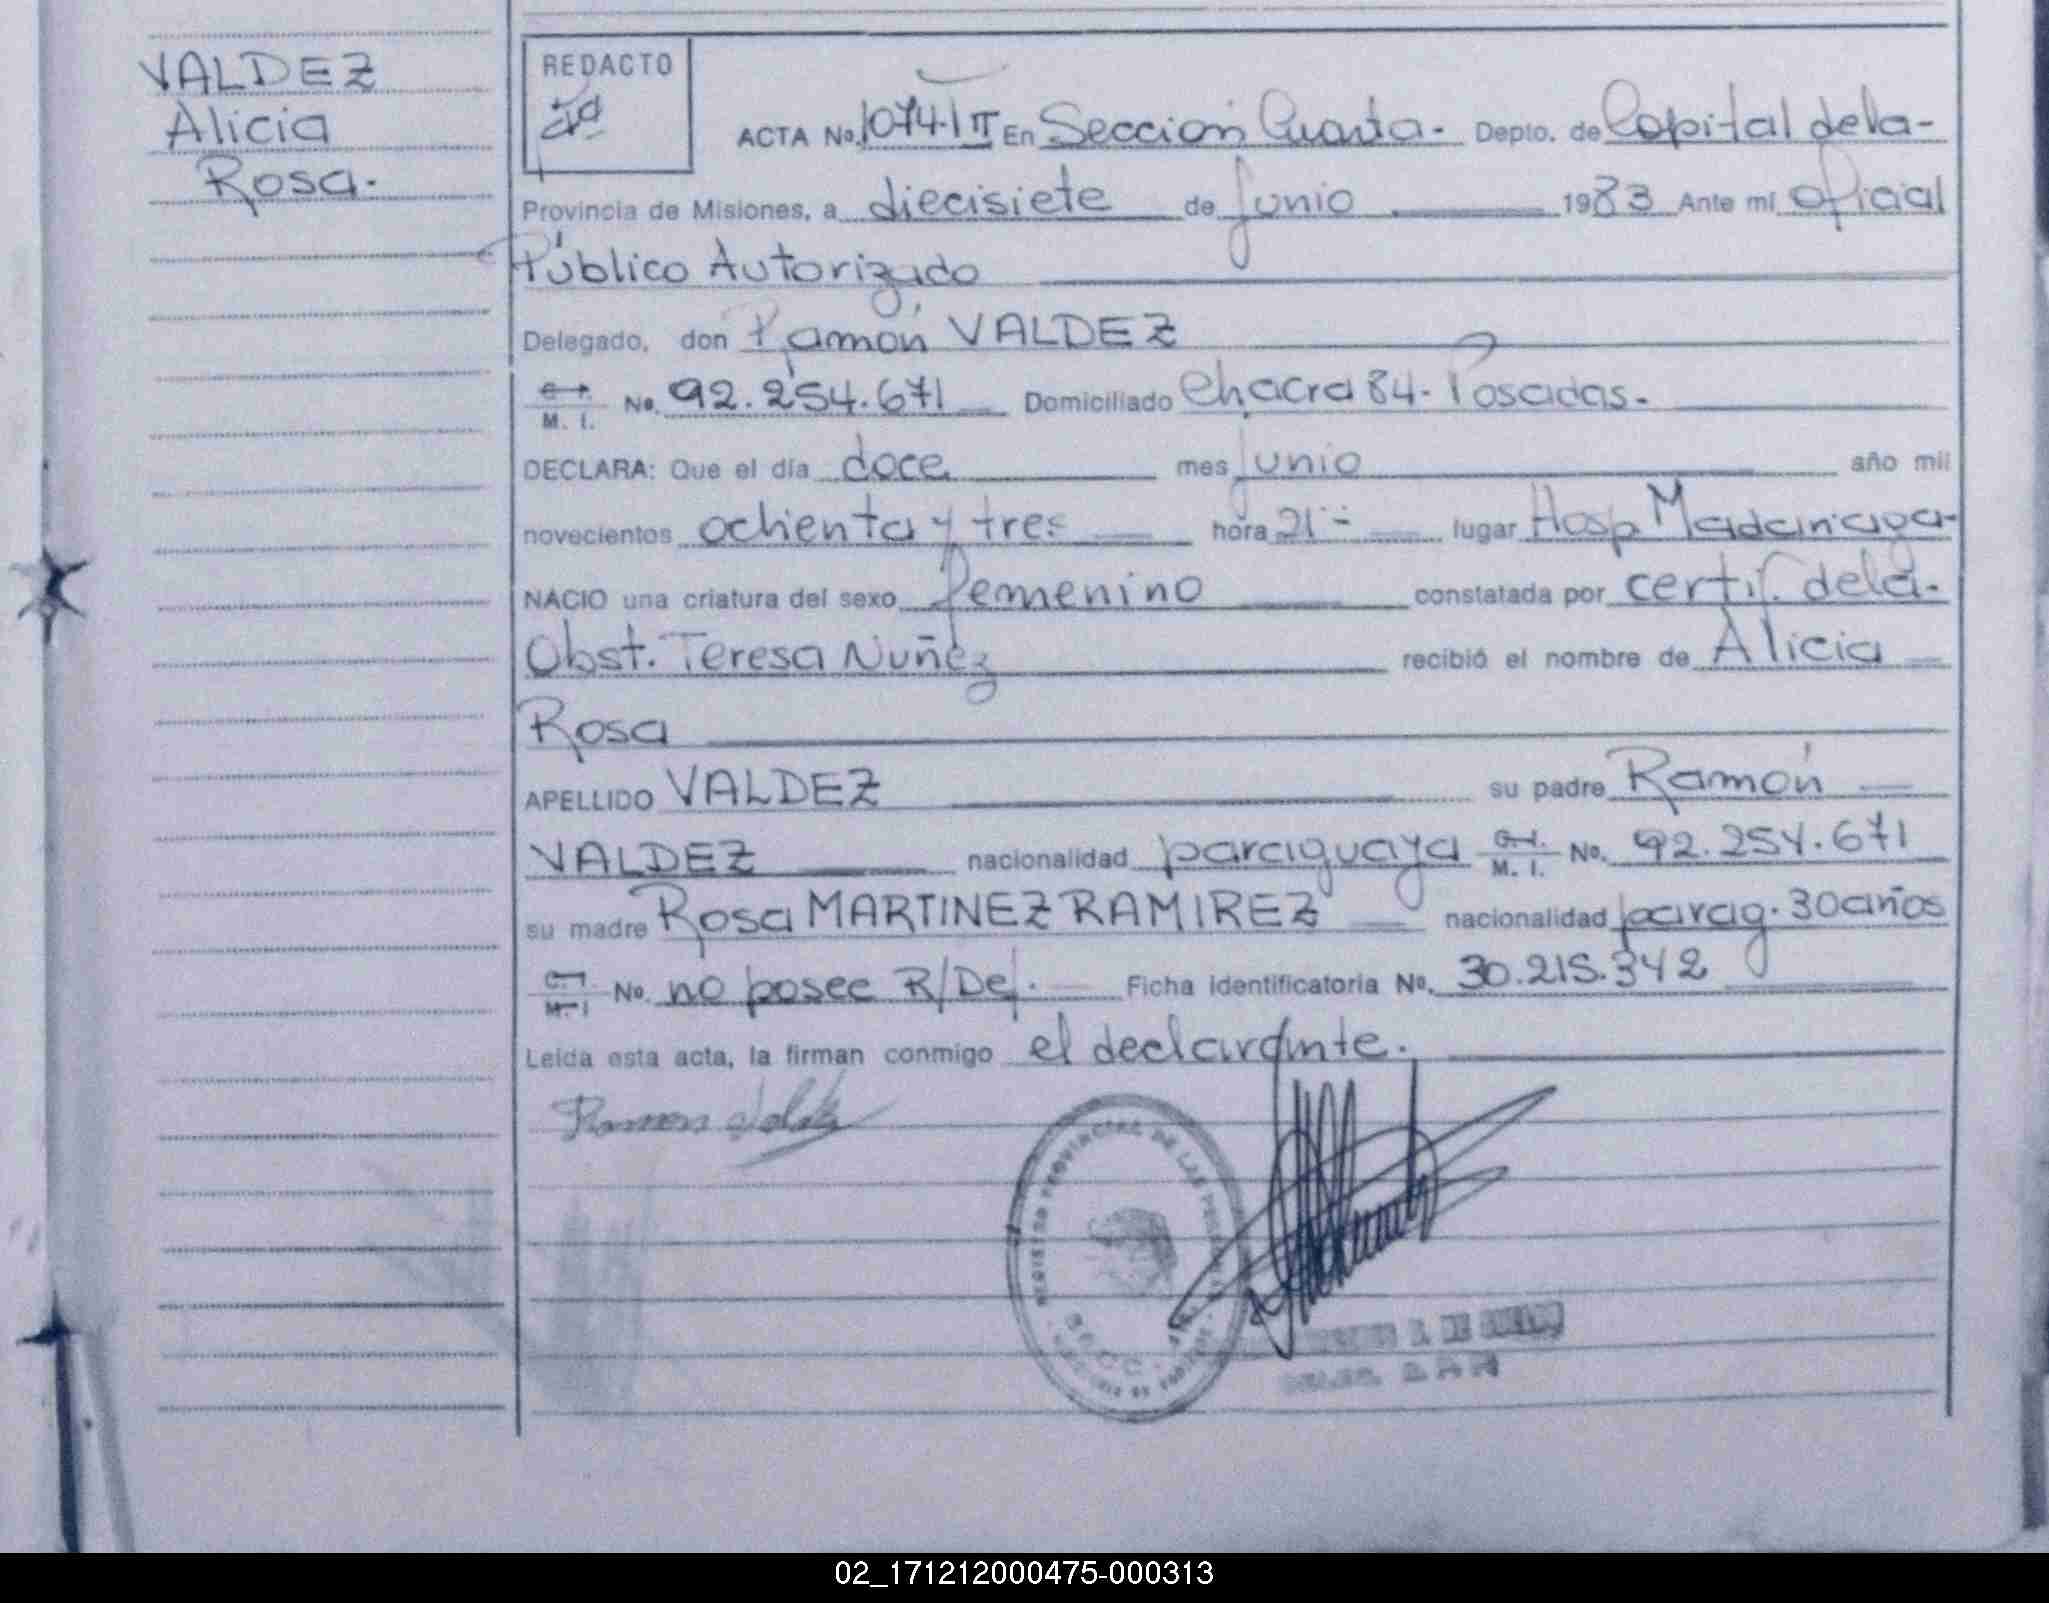 VALDEZ
Alicia
Rosa.
REDACTO
ACTA No. 1074-I II En Sección Cuarta. Depto. de Capital de la-
Provincia de Misiones, a diecisiete de junio 1983 Ante mí oficial
Público Autorizado
Delegado, don Ramón VALDEZ
M. I. No. 92.254.671 Domiciliado Chacra 84. Posadas.
DECLARA: Que el día doce mes junio año mil
novecientos ochenta y tres hora 21 lugar Hosp Madariaga-
NACIO una criatura del sexo femenino constatada por certif. de la.
Obst. Teresa Nuñez recibió el nombre de Alicia
Rosa
APELLIDO VALDEZ su padre Ramón
VALDEZ nacionalidad paraguaya M. I. No. 92.254.671
su madre Rosa MARTINEZ RAMIREZ nacionalidad parag. 30 años
No. no posee R/De/. Ficha identificatoria No. 30.215.342
Leída esta acta, la firman conmigo el declarante.
Ramon Valdez
REGISTRO PROVINCIAL DE LAS PERSONAS
02_171212000475-000313